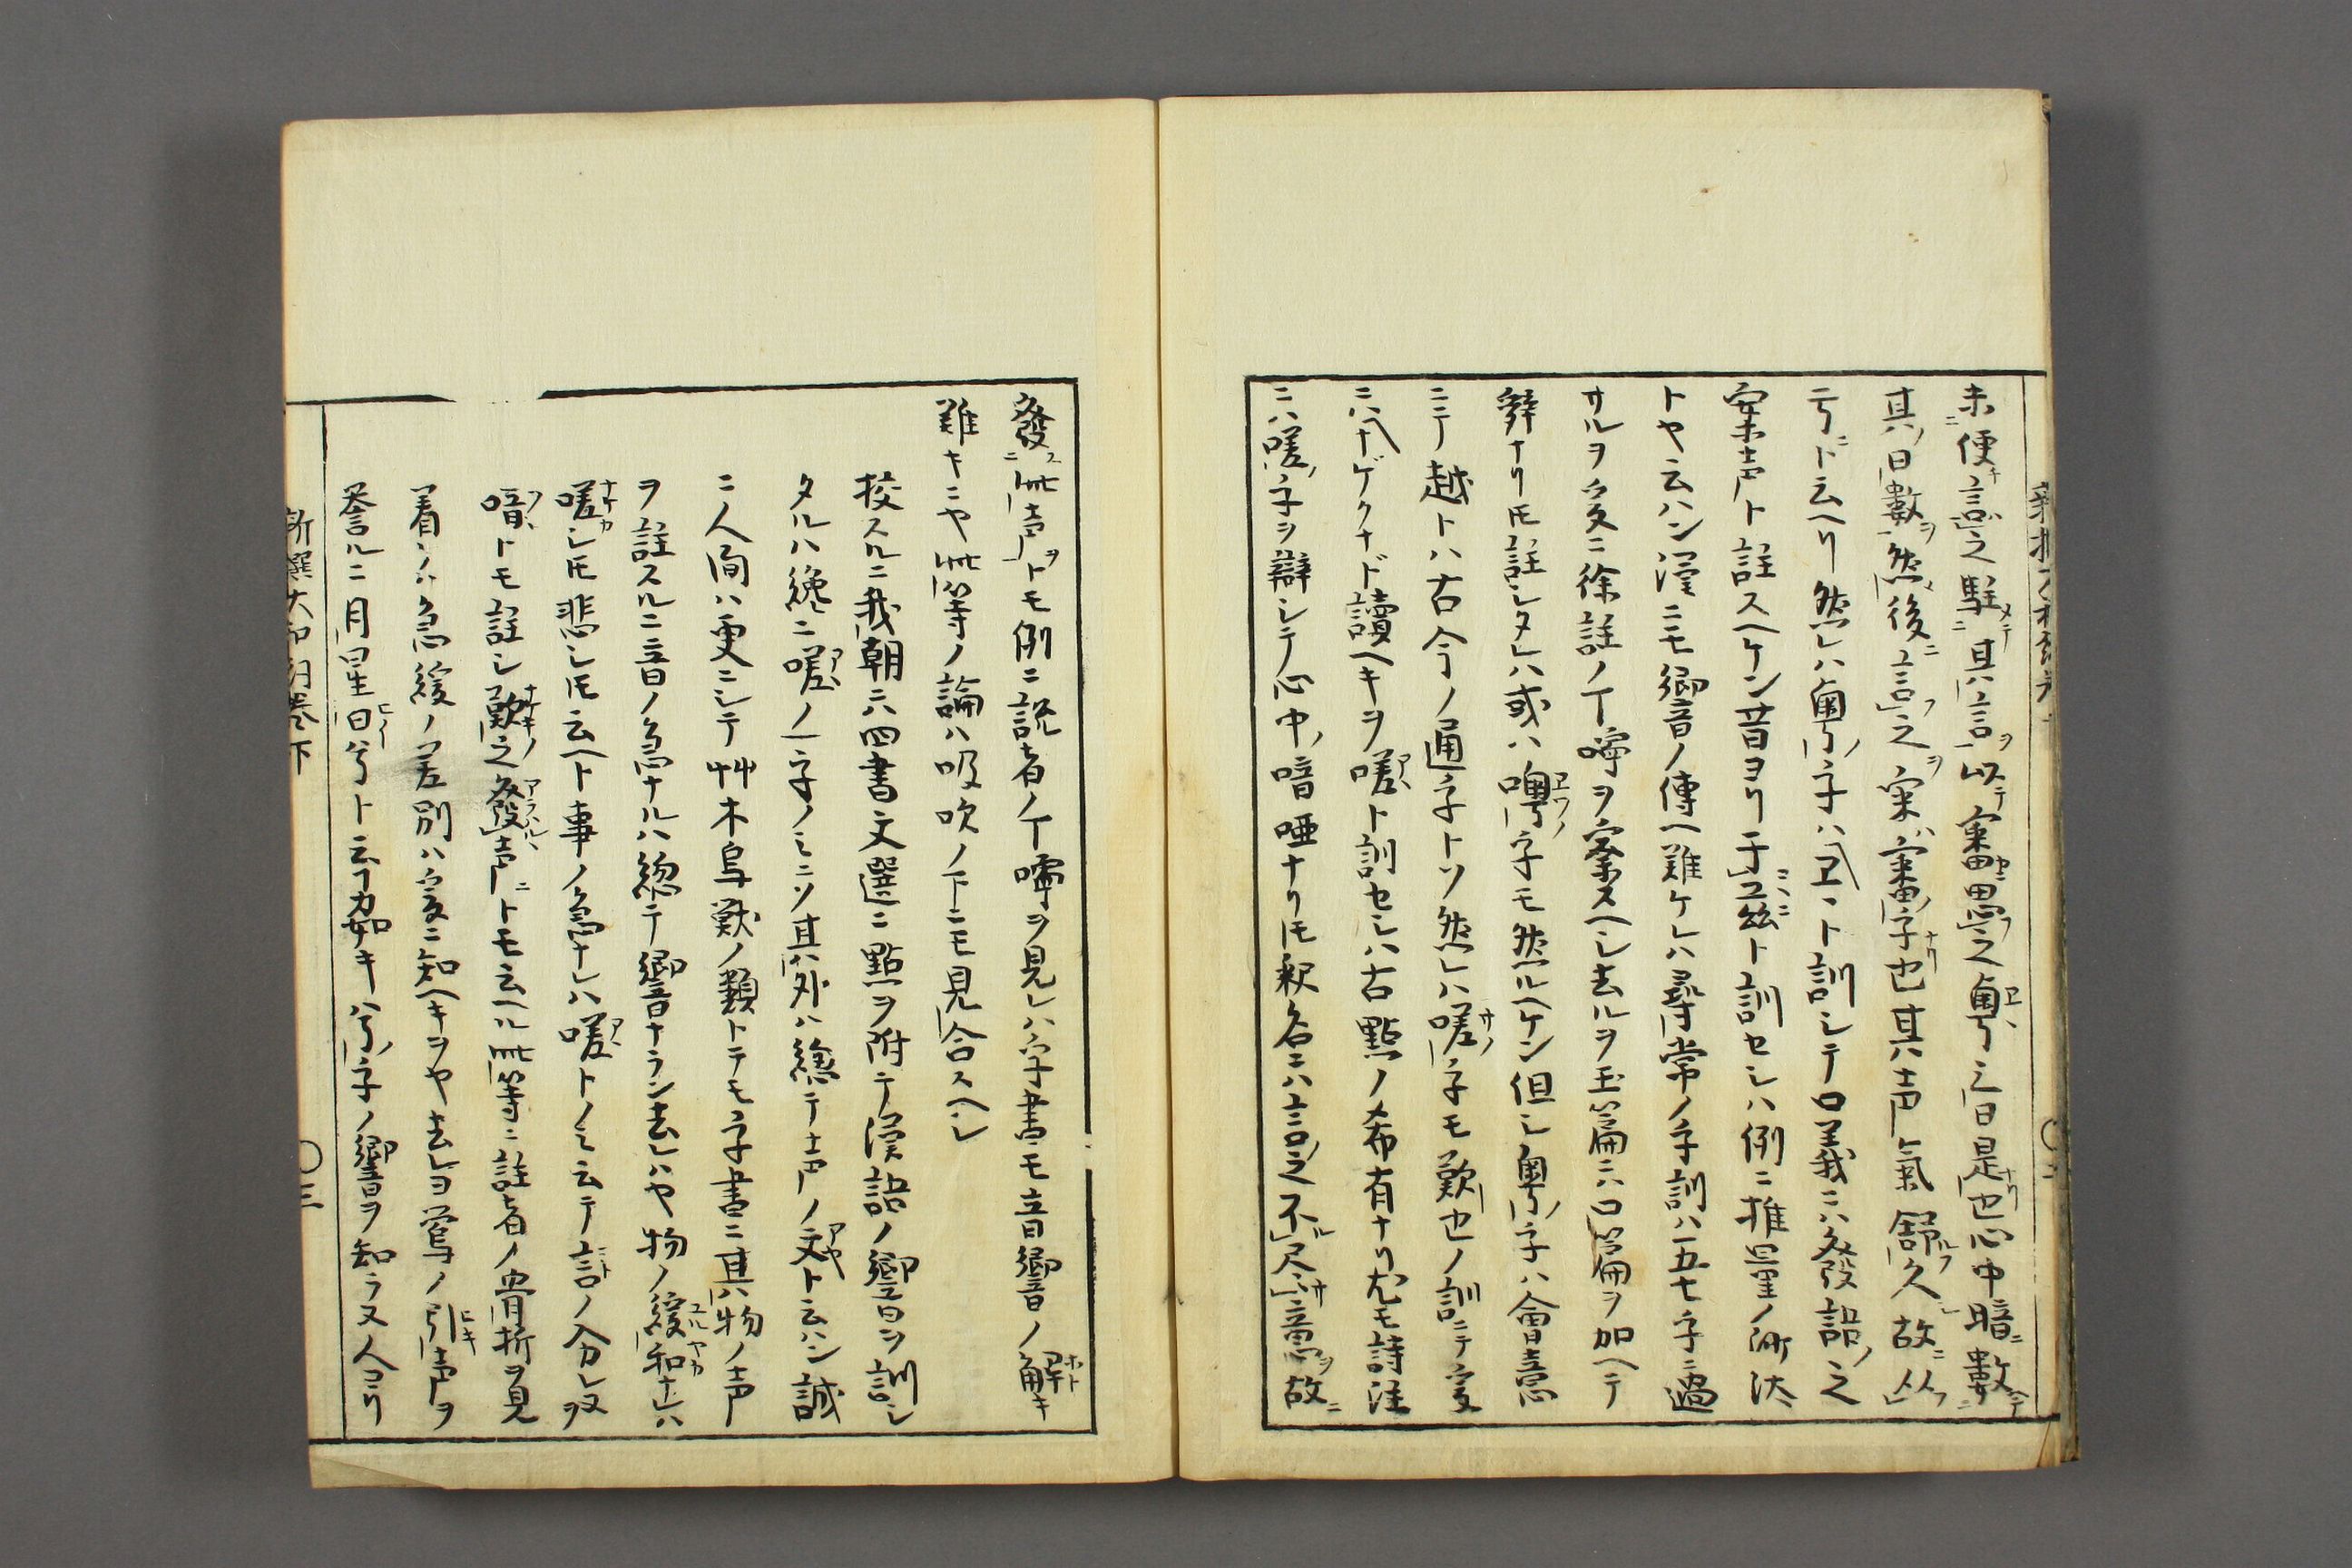 未便言之駐其言以審思之粤之曰是也心中暗數
其日數然後言之寀審字也其声氣舒久故从
亏ド云ヘリ然レハ粤字ハヱヽト訓シテ口義ニハ發語之
寀声ト註スヘケン昔ヨリ于茲ト訓セシハ例ニ推量ノ所決
トヤ云ハン漢ニモ響ノ傳ヘ難ケレハ尋常ノ字訓ハ五七字ニ過
サルヲ爰ニ徐註ノ丁嚀ヲ案スヘシ去ルヲ玉篇ニハ口篇ヲ加ヘテ
辞ナリトモ註シタレハ或ハ噢字モ然ルヘケン但シ粤字ハ會意
ニテ越トハ古今ノ通字トソ然レハ嗟字モ歎也ノ訓ニテ爰
ニハナゲクナド讀ヘキヲ嗟ト訓セシハ古點ノ希有ナリ尤モ詩註
ニハ嗟字ヲ辯シテ心中喑唖ナリトモ釈名ニハ言之不尽意故
發此声トモ例ニ説者ノ丁嚀ヲ見レハ字書モ音響ノ解キ
難キニヤ此等ノ論ハ吸吹ノ下ニモ見合スヘシ
按スルニ我朝ニハ四書文選ニ點ヲ附テ漢語ノ響ヲ訓シ
タルハ纔ニ嗟ノ一字ノミニソ其外ハ總テ声ノ文ト云ハン誠
ニ人間ハ更ニシテ艸木鳥獣ノ類トテモ字書ニ其物ノ声
ヲ註スルニ音ノ急ナルハ總テ響ナラン去レハヤ物ノ緩和ナレハ
嗟シトモ悲シトモ云ヘト事ノ急ナレハ嗟トノミ云テ言ノ分レヌヲ
喑トモ註シ歎之發声トモ云ヘル此等ニ註者ノ骨折ヲ見
着ハ急緩ノ差別ハ爰ニ知ヘキヲヤ去レヨ鶯ノ引声ヲ
誉ルニ月星日兮ト云ヿ如キハ兮字ノ響ヲ知ラヌ人コリ
新撰大和詞巻下
〇三